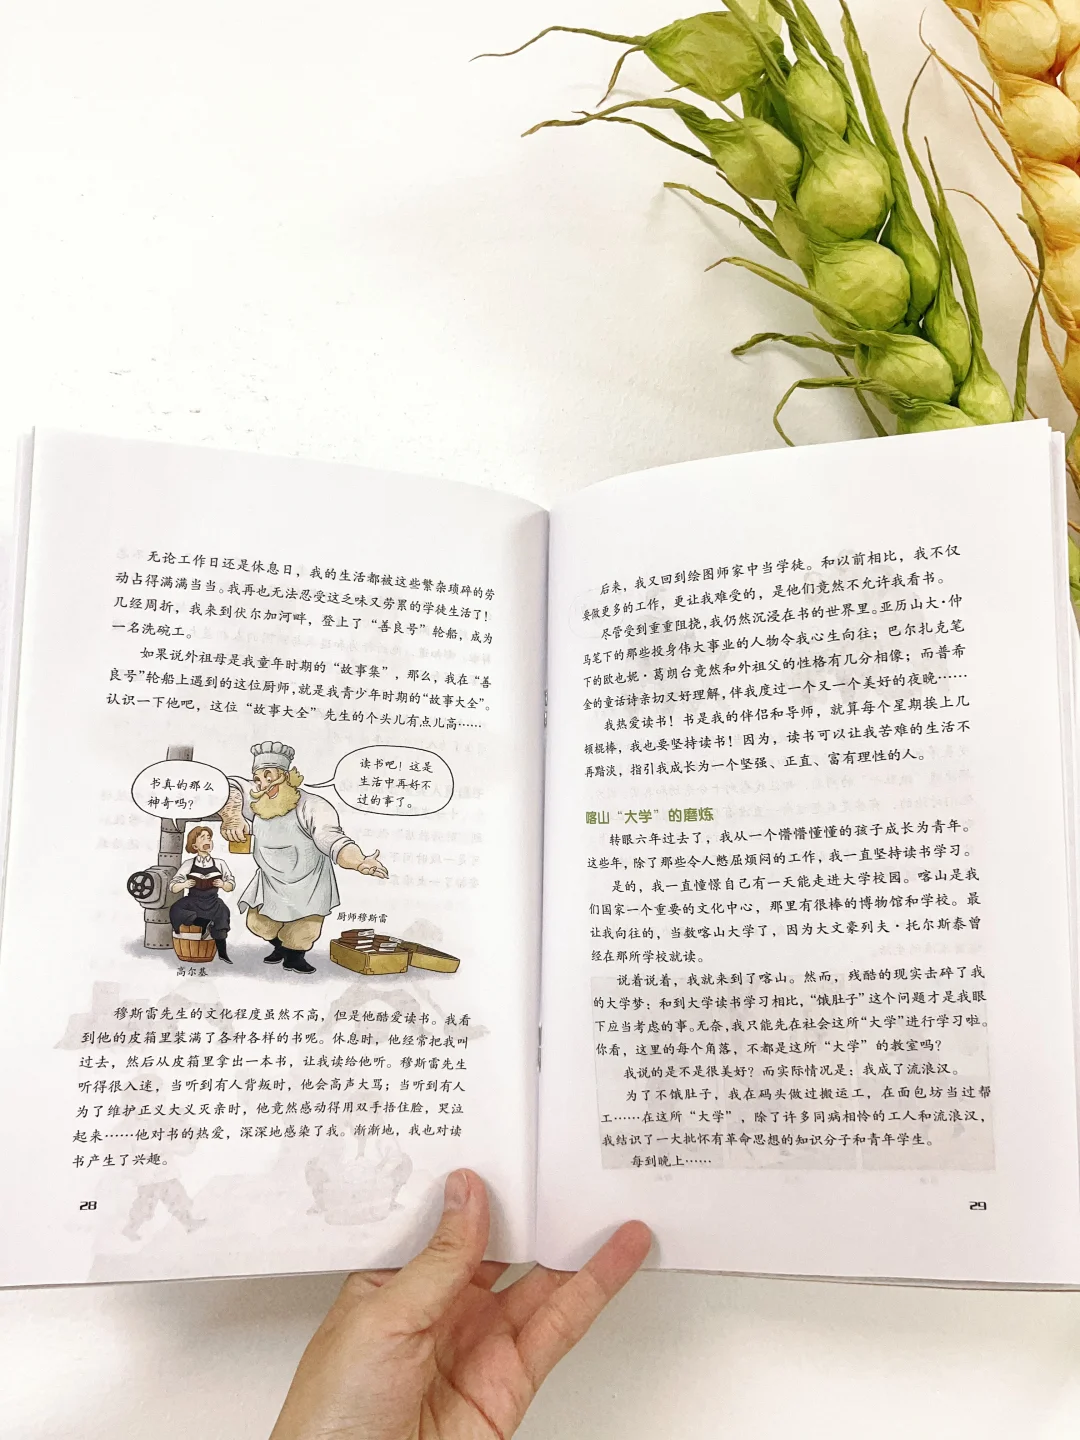 无论工作日还是休息日，我的生活都被这些繁杂琐碎的劳
动占得满满当当。我再也无法忍受这乏味又劳累的学徒生活了！
几经周折，我来到伏尔加河畔，登上了“善良号”轮船，成为
一名洗碗工。
如果说外祖母是我童年时期的“故事集”，那么，我在“善
良号”轮船上遇到的这位厨师，就是我青少年时期的“故事大全”。
认识一下他吧，这位“故事大全”先生的个头儿有点儿高……
书真的那么
神奇吗？
读书吧！这是
生活中再好不
过的事了。
厨师穆斯雷
高尔基
穆斯雷先生的文化程度虽然不高，但是他酷爱读书。我看
到他的皮箱里装满了各种各样的书呢。休息时，他经常把我叫
过去，然后从皮箱里拿出一本书，让我读给他听。穆斯雷先生
听得很入迷，当听到有人背叛时，他会高声大骂；当听到有人
为了维护正义大义灭亲时，他竟然感动得用双手捂住脸，哭泣
起来……他对书的热爱，深深地感染了我。渐渐地，我也对读
书产生了兴趣。
28
后来，我又回到绘图师家中当学徒。和以前相比，我不仅
要做更多的工作，更让我难受的，是他们竟然不允许我看书。
尽管受到重重阻挠，我仍然沉浸在书的世界里。亚历山大·仲
马笔下的那些投身伟大事业的人物令我心生向往；巴尔扎克笔
下的欧也妮·葛朗台竟然和外祖父的性格有几分相像；而普希
金的童话诗亲切又好理解，伴我度过一个又一个美好的夜晚……
我热爱读书！书是我的伴侣和导师，就算每个星期挨上几
顿棍棒，我也要坚持读书！因为，读书可以让我苦难的生活不
再黯淡，指引我成长为一个坚强、正直、富有理性的人。
喀山“大学”的磨炼
转眼六年过去了，我从一个懵懵懂懂的孩子成长为青年。
这些年，除了那些令人憋屈烦闷的工作，我一直坚持读书学习。
是的，我一直憧憬自己有一天能走进大学校园。喀山是我
们国家一个重要的文化中心，那里有很棒的博物馆和学校。最
让我向往的，当数喀山大学了，因为大文豪列夫·托尔斯泰曾
经在那所学校就读。
说着说着，我就来到了喀山。然而，残酷的现实击碎了我
的大学梦：和到大学读书学习相比，“饿肚子”这个问题才是我眼
下应当考虑的事。无奈，我只能先在社会这所“大学”进行学习啦。
你看，这里的每个角落，不都是这所“大学”的教室吗？
我说的是不是很美好？而实际情况是：我成了流浪汉。
为了不饿肚子，我在码头做过搬运工，在面包坊当过帮
工……在这所“大学”，除了许多同病相怜的工人和流浪汉，
我结识了一大批怀有革命思想的知识分子和青年学生。
每到晚上……
29